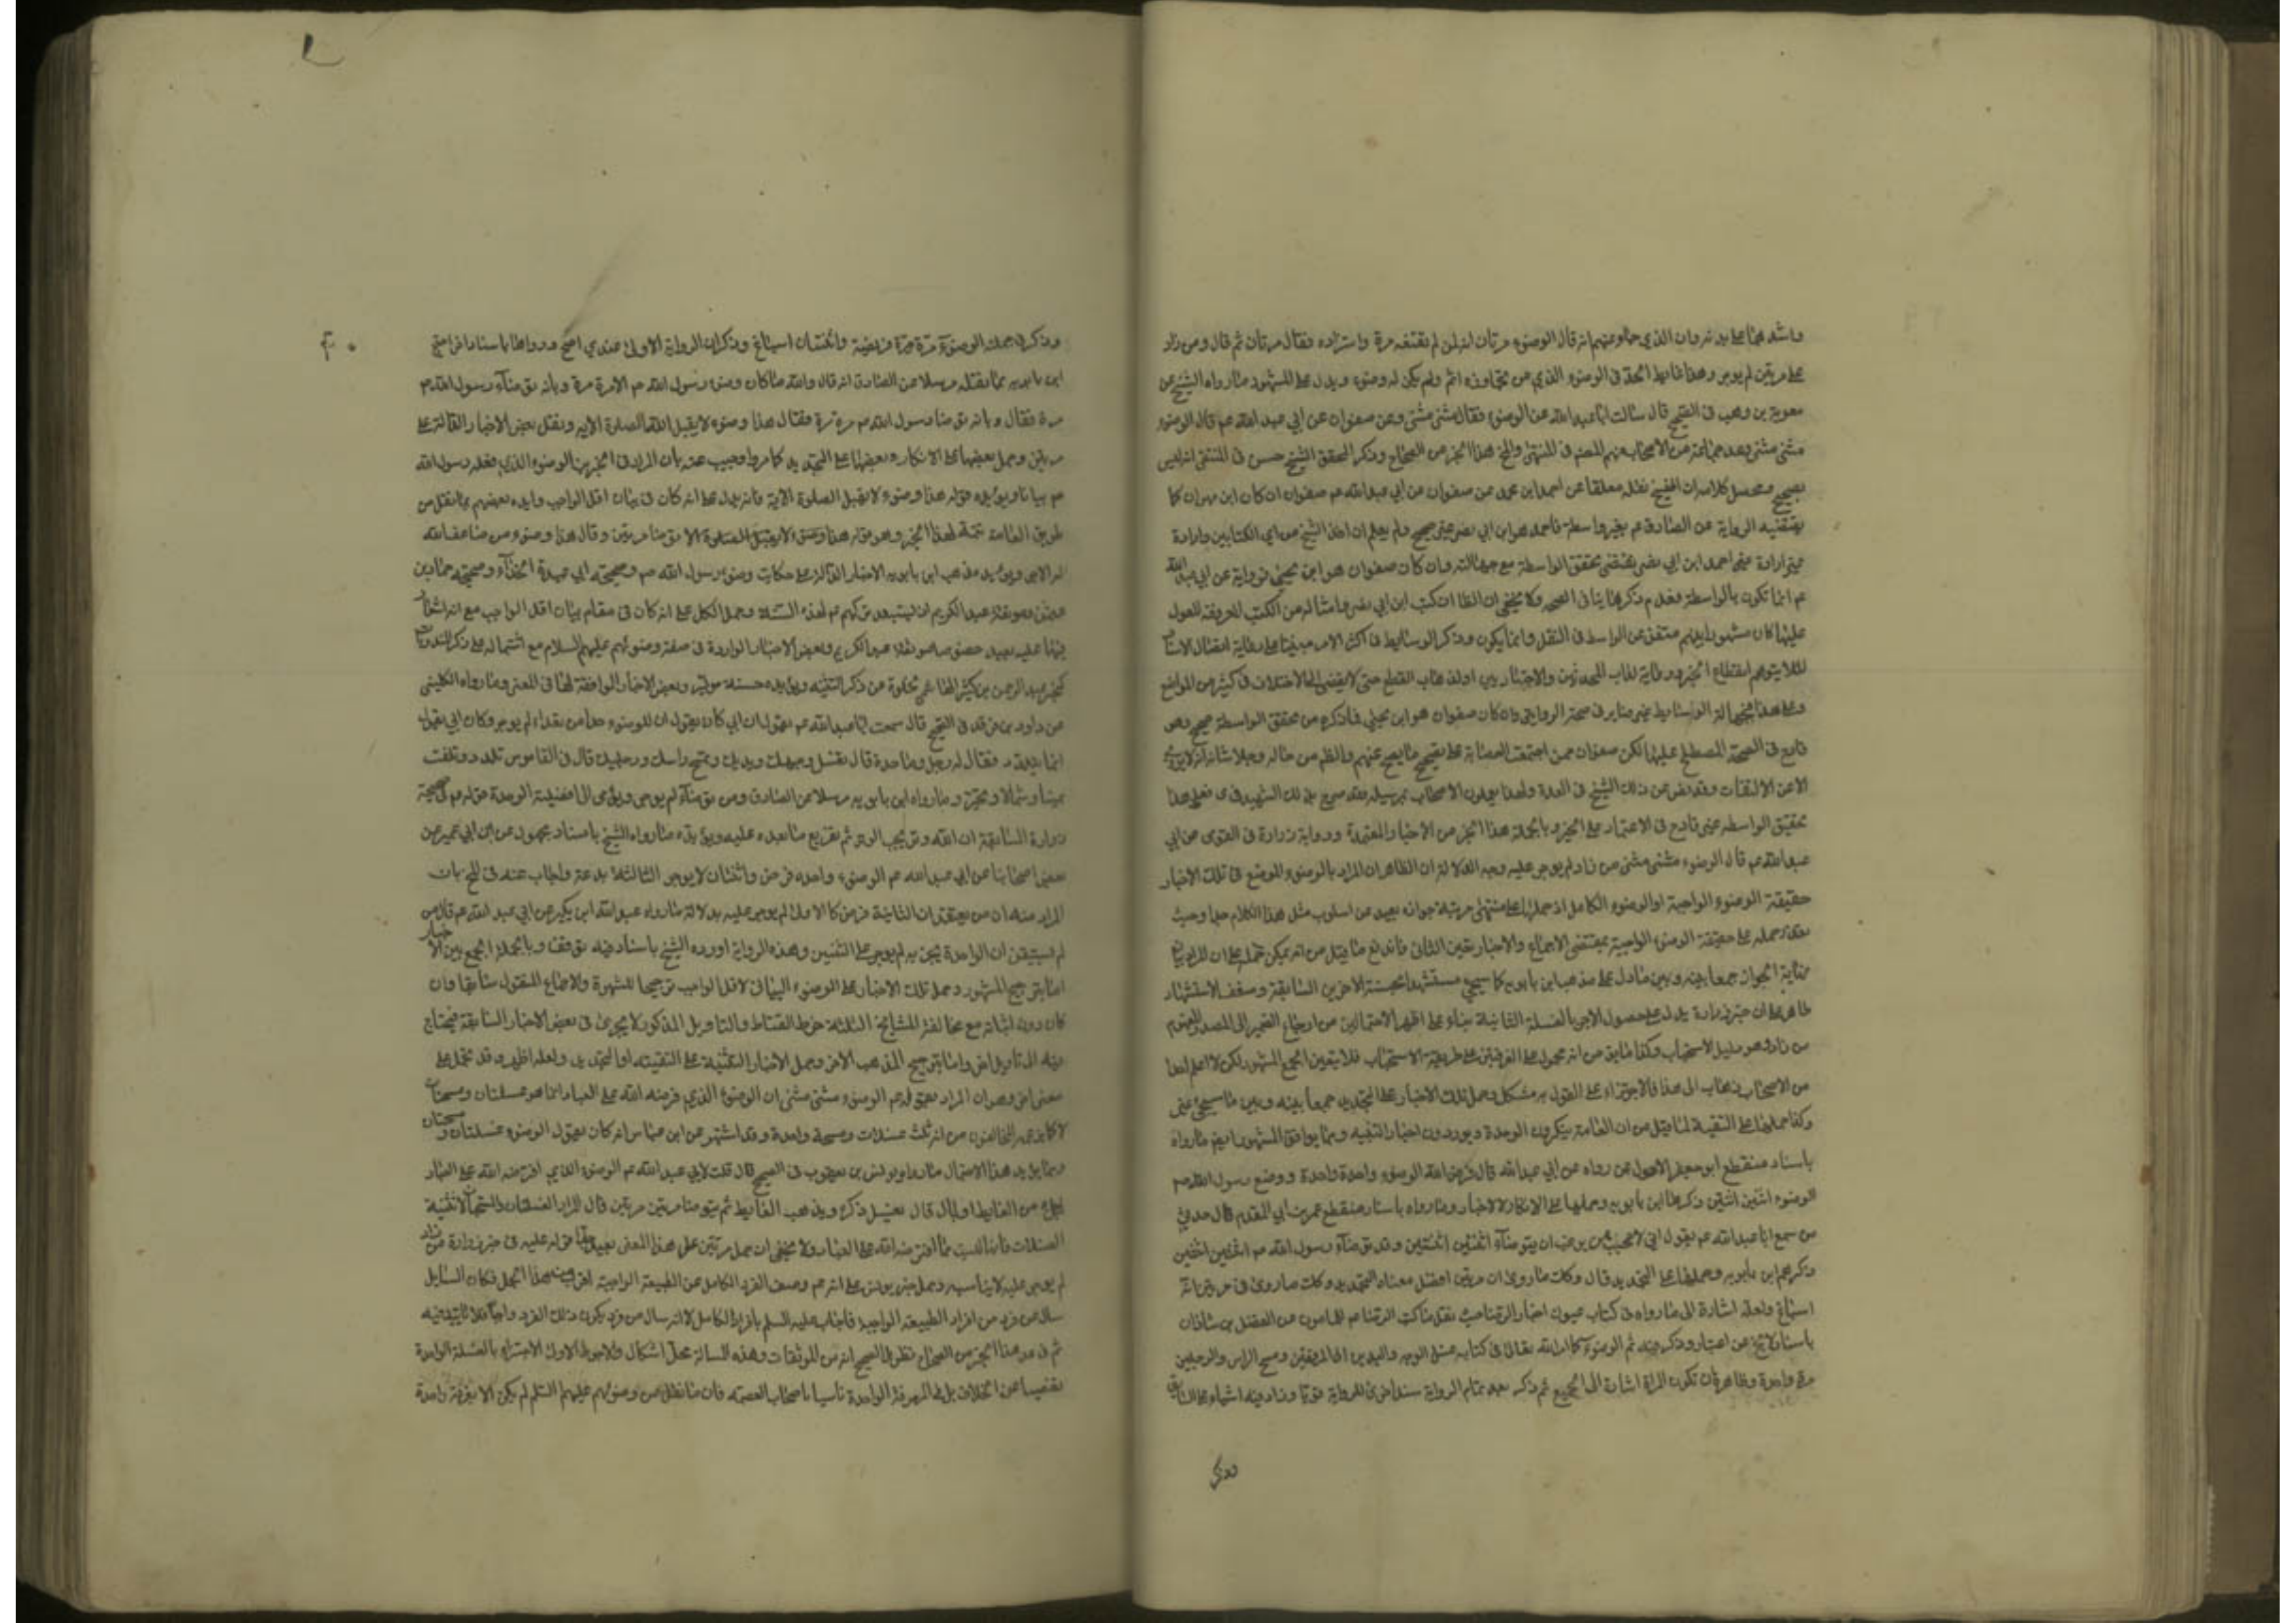 واشد هما على يدنه وان الذي جاء عنهم انه قال الوضوء مرتان انه لمن لم يقنعه مرة واستزاده فقال مرتان ثم قال ومن زاد
على مرتين لم يوجر وهذا غاية الحد في الوضوء الذي من تجاوزه اثم ولم يكن له وضوء ويدل على المشهور ما رواه الشيخ عن
معوية بن وهب في الصحيح قال سالت ابا عبد الله عن الوضوء فقال مثنى مثنى وعن صفوان عن ابي عبد الله عم قال الوضوء
مثنى مثنى وعد جماعة من الاصحاب منهم المصنف في المنتهى والمخ هذا الخبر من الصحاح وذكر المحقق الشيخ حسن في المنتقى انه ليس
بصحيح ومحصل كلامه ان الشيخ نقله معلقا عن احمد ابن محمد عن صفوان عن ابي عبد الله عم صفوان ان كان ابن مهران كما
يقتضيه الرواية عن الصادق عم بغير واسطة فاحمد هو ابن ابي نصر عن صحيح ولم يعلم ان اخذ الشيخ من اي الكتابين وارادة
غير ارادة احمد ابن ابي نصر يقتضى تحقق الواسطة مع جهالته وان كان صفوان هو ابن يحيى فروايته عن ابي عبد الله
عم انما تكون بالواسطة فعدم ذكرها ينافى الصحة ولا يخفى ان الظا ان كتب ابن ابي نصر وامثاله من الكتب المعروفة المعول
عليها كان مشهورا بينهم مستغن عن الواسطة في النقل وانما يكون ذكر الوسائط في اكثر الامر مبنيا على رعاية اتصال الاسناد
لئلا يتوهم انقطاع الخبر ورعاية لداب المحدثين
وعلى هذا فجهالة الوسائط غير ضاير في صحة الرواية وان كان صفوان هو ابن يحيى فما ذكره من تحقق الواسطة صحيح وهو
قادح في الصحة المصطلح عليها لكن صفوان ممن اجتمعت العصابة على تصحيح ما يصح عنهم والظ من حاله وجلالة شانه انه لا يروي
الا عن الثقات وقد نص عن ذلك الشيخ في العدة ولهذا يعدون الاصحاب مراسيله وقد صرح بذلك الشهيد في كرى فعلى هذا
تحقق الواسطة غير قادح في الاعتماد على الخبر وبالجملة هذا الخبر من الاخبار المعتمدة ورواية زرارة في القوى عن ابي
عبد الله عم قال الوضوء مثنى مثنى من زاد لم يوجر عليه وجه الدلالة ان الظاهر ان المراد بالوضوء الموضع في تلك الاخبار
حقيقة الوضوء الواجبة او الوضوء الكامل اذ حملها على منتهى مرتبة جوازه بعيد عن اسلوب مثل هذا الكلام جدا وحيث
تعذر حمله على حقيقة الوضوء الواجبة بمقتضى الاجماع والاخبار تعين الثاني فاندفع ما قيل من انه يمكن حمله على ان المراد بيان
نهاية الجواز جمعا بينه وبين ما دل على مذهب ابن بابويه كما سيجئ مستشهدا بحسنة الاخرين السابقة وضعف الاستشهاد
ظاهر كما ان خبر زرارة يدل على حصول الاجر بالغسلة الثانية بناء على اظهر الاحتمالين من ارجاع الضمير الى المصدر المفهوم
من زاد وهو دليل الاستحباب وكذا ما يق من انه محمول على الغرفتين على طريقة الاستحباب فلا يتعين الجمع المشهور لكن لا اعلم احدا
من الاصحاب ذهاب الى هذا فالاجتزاء على القول به مشكل وحمل تلك الاخبار على التجديد جمعا بينه وبين ما سيجئ
وكذا حملها على التقية لما قيل من ان العامة ينكرون الوحدة ويوردون اخبار التثنية ومما يوافق المشهور ايضا ما رواه
باسناد منقطع ابو جعفر الاحول عمن رواه عن ابي عبد الله قال فرض الله الوضوء واحدة واحدة ووضع رسول الله صم
الوضوء اثنتين اثنتين ذكرها ابن بابويه وحملها على الانكار لا الاخبار وما رواه باسناد منقطع عمرو بن ابي المقدم قال حدثني
من سمع ابا عبد الله عم يقول اني لاعجب ممن يرغب ان يتوضا اثنتين اثنتين وقد توضا رسول الله صم اثنتين اثنتين
ذكرهم ابن بابويه وحملها على التجديد قال وكذلك ما روى ان مرتين افضل معناه التجديد وكذلك ما روى في مرتين انه
اسباغ ولعله اشارة الى ما رواه في كتاب عيون اخبار الرضا حيث نقل ما كتب الرضا عم للمامون عن الفضل بن شاذان
باسناد لا يخ عن اعتبار وذكر فيه ثم الوضوء كما امر الله تعالى في كتابه غسل الوجه واليدين الى المرفقين ومسح الراس والرجلين
مرة واحدة وظاهره ان تكون المرة اشارة الى الجميع ثم ذكر بعد تمام الرواية سندا اخر للرواية قويا وزاد فيه اشياء على السابق
وذكر
٤٠
وذكر في جملته الوضوء مرة مرة فريضة واثنتان اسباغ وذكر ان الرواية الاولى عندي اصح ورواها باسناد اخر احتج
ابن بابويه بما نقله مرسلا عن الصادق انه قال والله ما كان وضوء رسول الله صم الا مرة مرة وبانه توضا رسول الله صم
مرة فقال وبانه توضا رسول الله صم مرة مرة فقال هذا وضوء لا يقبل الله الصلوة الا به ونقل بعض الاخبار الدالة على
مرتين وحمل بعضها على الانكار وبعضها على التجديد كما مر واجيب عنه بان المراد في الخبرين الوضوء الذي فعله رسول الله
صم بيانا ويؤيده قوله هذا وضوء لا يقبل الصلوة الا به فانه يدل على انه كان في بيان اقل الواجب وايده بعضهم بما نقل من
طريق العامة تتمة لهذا الخبر وهو قوله هذا وضوء لا يقبل الصلوة الا به توضا مرتين وقال هذا وضوء من ضاعف الله
له الاجر ويؤيد مذهب ابن بابويه الاخبار الدالة على حكاية وضوء رسول الله صم وصحيحة ابي عبيدة الحذاء وصحيحة حماد بن
عثمن وموثقة عبد الكريم اذ يستبعد تركهم عم لهذه السنة وحمل الكل على انه كان في مقام بيان اقل الواجب مع انه لا اشعار
فيها عليه بعيد خصوصا موثقة عبد الكريم وبعض الاخبار الواردة في صفة وضوئهم عليهم السلام مع اشتماله على ذكر المندوبات
كخبر عبد الرحمن بن كثير الهاشمي خلوه عن ذكر التثنية ويؤيده حسنة ميسر وبعض الاخبار الموافقة لها في المعنى وما رواه الكليني
عن داود بن فرقد في الصحيح قال سمعت ابا عبد الله عم يقول ان ابي كان يقول ان للوضوء حدا من تعداه لم يوجر وكان ابي يقول
انما يتلدد فقال له رجل وما حده قال تغسل وجهك ويديك وتمسح راسك ورجليك قال في القاموس تلدد تلفت
يمينا وشمالا وتحير وما رواه ابن بابويه مرسلا عن الصادق ومن توضا لم يوجر ويومى الى افضلية الوحدة قوله عم في صحيحة
زرارة السابقة ان الله وتر يحب الوتر ثم تفريع ما بعده عليه ويؤيده ما رواه الشيخ باسناد مجهول عن ابن ابي عمير عن
بعض اصحابنا عن ابي عبد الله عم الوضوء واحدة فرض واثنتان لا يوجر الثالثة بدعة واجاب عنه في المخ بان
المراد منه ان من يعتقد ان الثانية فرض كالاولى لم يوجر عليه بدلالة ما رواه عبد الله ابن بكير عن ابي عبد الله عم قال من
لم يستيقن ان الواحدة يجزيه لم يوجر على الثنتين وهذه الرواية اورده الشيخ باسناد فيه توقف وبالجملة الجمع بين الاخبار
اما بترجيح المشهور وحمل تلك الاخبار على الوضوء البياني لاقل الواجب ترجيحا للشهرة والاجماع المنقول سابقا وان
كان دون اثباته مع مخالفة المشايخ الثلثة خرط القتاد والتاويل المذكور لا يجرى في بعض الاخبار السابقة فيحتاج
فيه الى تاويل اخر واما بترجيح المذهب الاخر وحمل الاخبار التثنية على التقية او التجديد ولعله اظهر وقد تحمل على
معنى اخر وهو ان المراد بقوله عم الوضوء مثنى مثنى ان الوضوء الذي فرضه الله على العباد انما هو غسلتان ومسحتان
لا كما يذهب المخالفون من انه ثلث غسلات ومسحة واحدة وقد اشتهر عن ابن عباس انه كان يقول الوضوء غسلتان ومسحتان
ومما يؤيد هذا الاحتمال ما رواه يونس بن يعقوب في الصحيح قال قلت لابي عبد الله عم الوضوء الذي افترضه الله على العباد
لمن جاء من الغائط او بال قال يغسل ذكره ويذهب الغائط ثم يتوضا مرتين مرتين قال المراد الغسلتان والمسحتان لا تثنية
الغسلات فانها ليست مما افترضه الله على العباد ولا يخفى ان حمل مرتين على هذا المعنى بعيد جدا قوله عليه في خبر زرارة من زاد
لم يوجر عليه لا يناسبه وحمل خبر يونس على انه عم وصف الفرد الكامل من الطبيعة الواجبة اقرب من هذا الحمل فكان السايل
سال عن فرد من افراد الطبيعة الواجبة فاجاب عليه السلم بافراد الكامل لا انه سال عن فرد يكون ذلك الفرد واجبا فلا تاييد فيه
ثم في عد هذا الخبر من الصحاح نظر والصحيح انه من الموثقات وهذه المسالة محل اشكال والاحوط الاولى الاجتزاء بالغسلة الواحدة
تفصيا عن الخلاف بل الغرفة الواحدة تاسيا باصحاب العصمة فان ما نقل من وضوئهم عليهم السلم لم يكن الا بغرفة واحدة